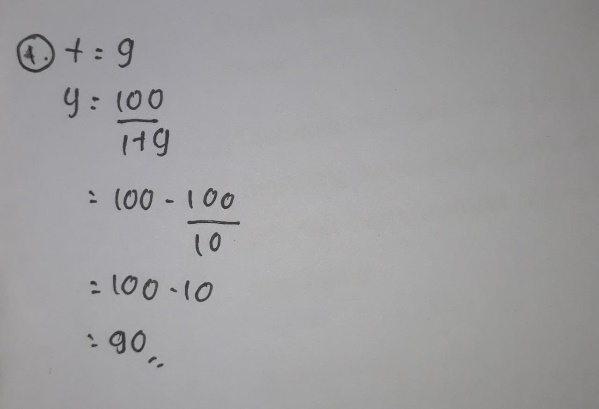 4. t = 9
y = 100
1+9
= 100 - 100
10
= 100 - 10
= 90,,